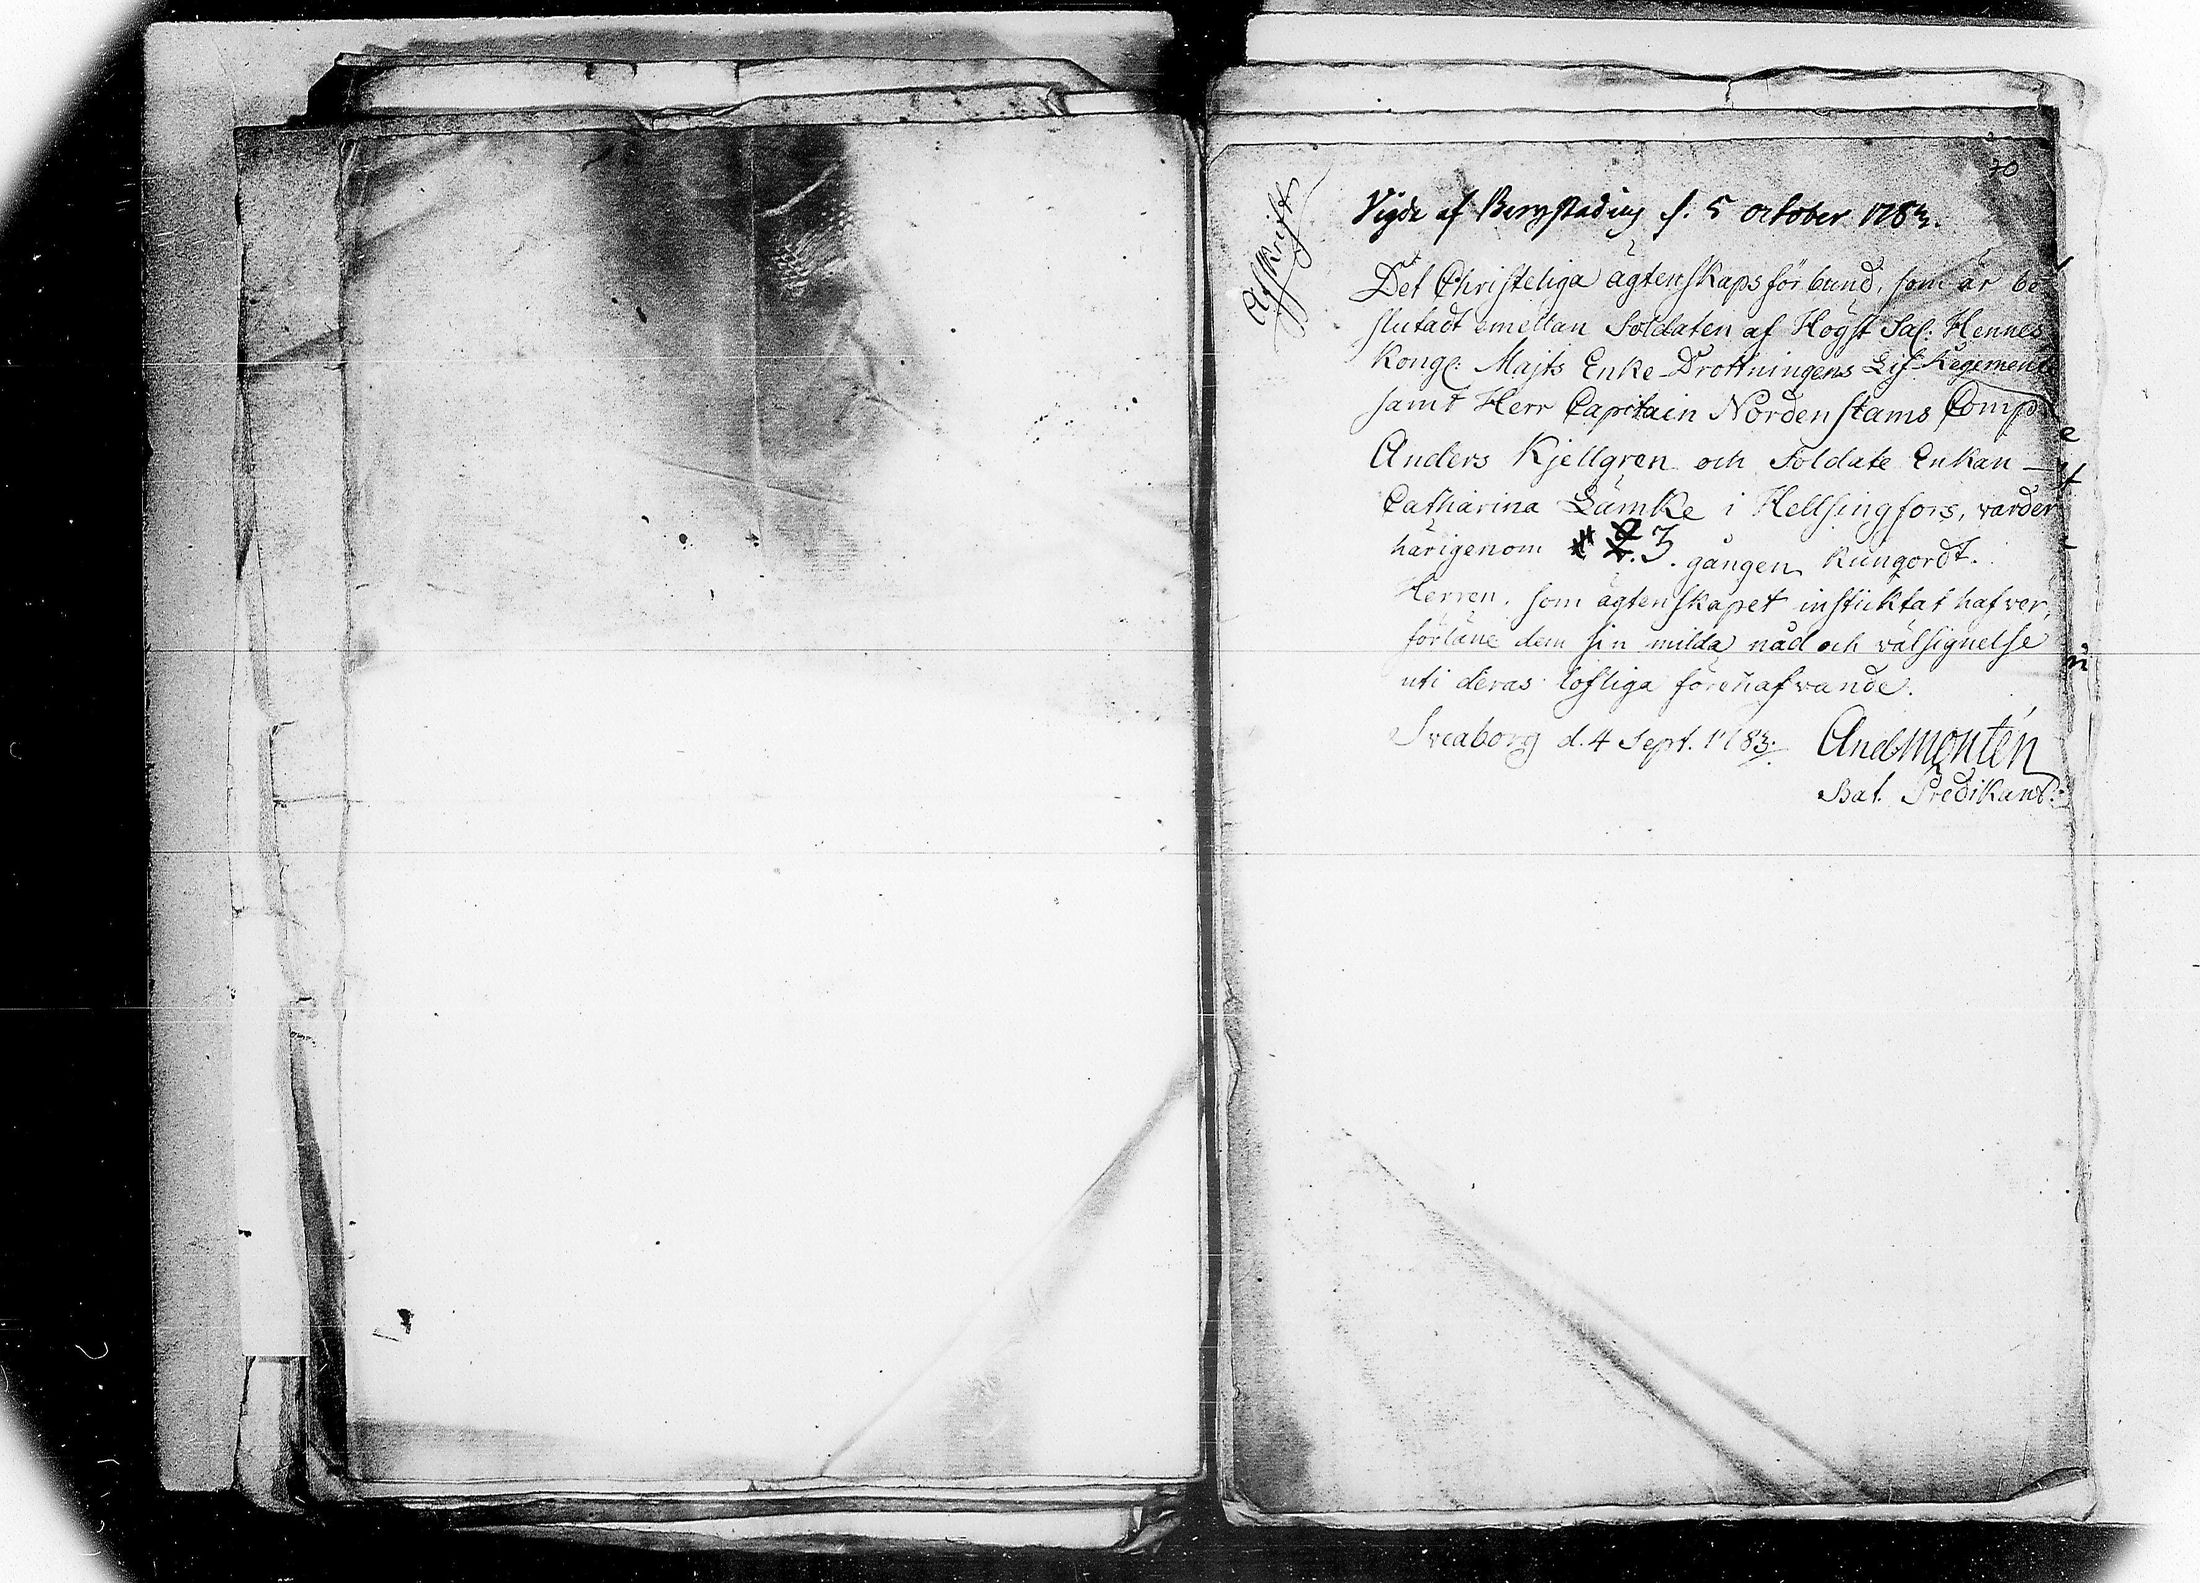 20
Afskrift
Vigde af Bergstadius d. 5 october 1783.
Det Christeliga ägtenskaps förbund, som är be
slutadt emellan Soldaten af Högst Sal: Hennes
Kongl: Majts Enke Drottningens Lif Regemente
samt Herr Capitain Nordenstams Comp:
Anders Kjellgren och Soldate Enkan
Catharina Lämke i Hellsingfors, varder
härigenom 3. gången kungördt.
Herren, som ägtenskapet insticktat hafver,
förläne dem sin milda nåd och välsignelse
uti deras lofliga förehafvande.
Sveaborg d. 4 Sept. 1783. And Montén
Bat. Predikant.